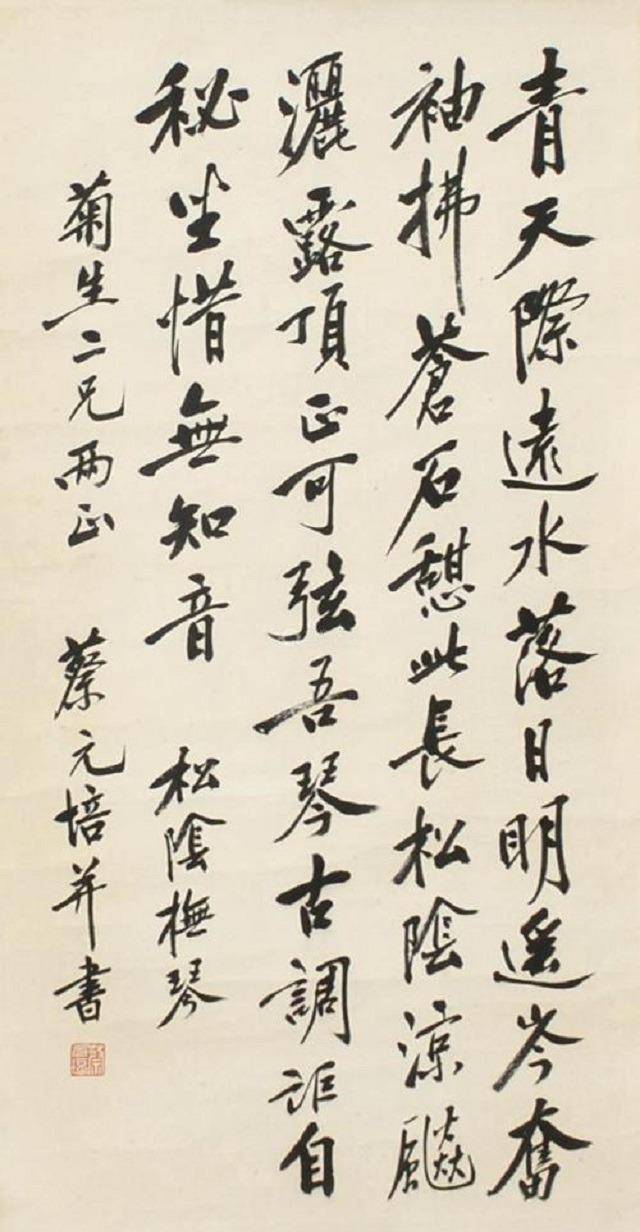 青天際遠水落日明遥岑奮
袖拂蒼石憩此長松陰涼飈
灑露頂正可弦吾琴古調詎自
秘坐惜無知音 松陰橅琴
菊生二兄兩正 蔡元培并書